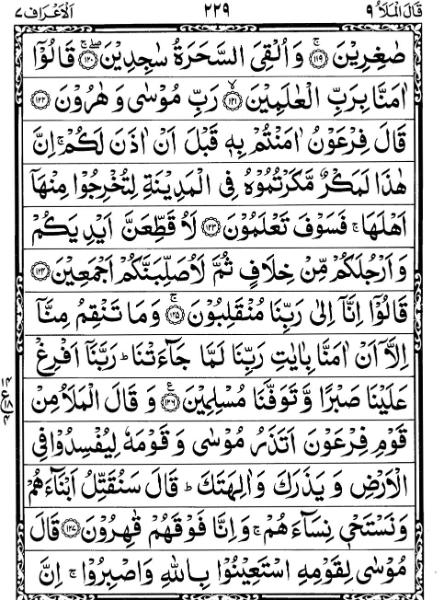 قَالَ الْمَلَاُ ٩ ٢٢٩ اَلْاَعْرَاف ٧
صٰغِرِيْنَ ۚ﴿۱۱۹﴾ وَاُلْقِىَ السَّحَرَةُ سٰجِدِيْنَ ۚۖ﴿۱۲۰﴾ قَالُوْۤا
اٰمَنَّا بِرَبِّ الْعٰلَمِيْنَ ۙ﴿۱۲۱﴾ رَبِّ مُوْسٰى وَهٰرُوْنَ ﴿۱۲۲﴾
قَالَ فِرْعَوْنُ اٰمَنْتُمْ بِهٖ قَبْلَ اَنْ اٰذَنَ لَكُمْ ۚ اِنَّ
هٰذَا لَمَكْرٌ مَّكَرْتُمُوْهُ فِى الْمَدِيْنَةِ لِتُخْرِجُوْا مِنْهَاۤ
اَهْلَهَا ۚ فَسَوْفَ تَعْلَمُوْنَ ﴿۱۲۳﴾ لَاُقَطِّعَنَّ اَيْدِيَكُمْ
وَاَرْجُلَكُمْ مِّنْ خِلَافٍ ثُمَّ لَاُصَلِّبَنَّكُمْ اَجْمَعِيْنَ ﴿۱۲۴﴾
قَالُوْۤا اِنَّاۤ اِلٰى رَبِّنَا مُنْقَلِبُوْنَ ۚ﴿۱۲۵﴾ وَمَا تَنْقِمُ مِنَّاۤ
اِلَّاۤ اَنْ اٰمَنَّا بِاٰيٰتِ رَبِّنَا لَمَّا جَآءَتْنَا ؕ رَبَّنَاۤ اَفْرِغْ
عَلَيْنَا صَبْرًا وَّتَوَفَّنَا مُسْلِمِيْنَ ﴿۱۲۶﴾ وَقَالَ الْمَلَاُ مِنْ
قَوْمِ فِرْعَوْنَ اَتَذَرُ مُوْسٰى وَقَوْمَهٗ لِيُفْسِدُوْا فِى
الْاَرْضِ وَيَذَرَكَ وَاٰلِهَتَكَ ؕ قَالَ سَنُقَتِّلُ اَبْنَآءَهُمْ
وَنَسْتَحْىٖ نِسَآءَهُمْ ۚ وَاِنَّا فَوْقَهُمْ قٰهِرُوْنَ ﴿۱۲۷﴾ قَالَ
مُوْسٰى لِقَوْمِهِ اسْتَعِيْنُوْا بِاللّٰهِ وَاصْبِرُوْا ۚ اِنَّ
۱۴
ع
۱۸
۴